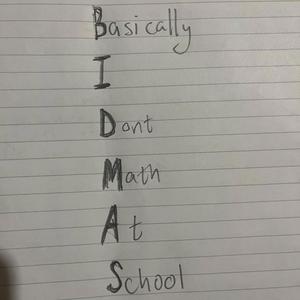 Basically
I
Dont
Math
At
School